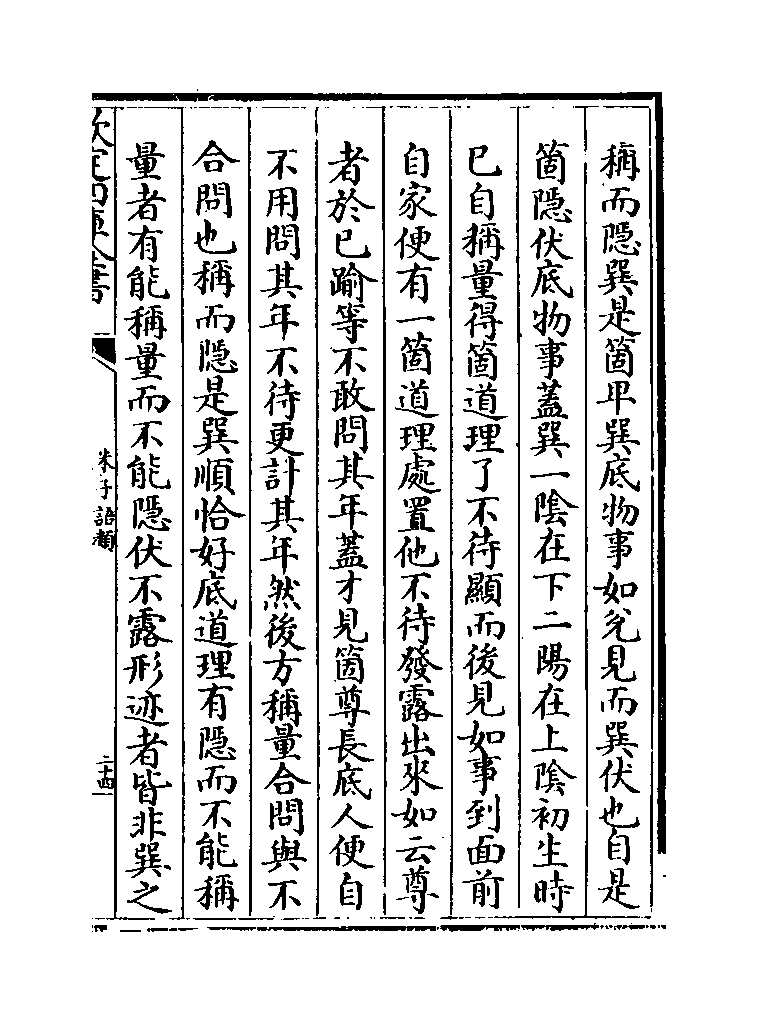 稱而隱巽是箇卑巽底物事如兊見而巽伏也自是
箇隱伏底物事蓋巽一隂在下二陽在上隂初生時
已自稱量得箇道理了不待顯而後見如事到面前
自家便有一箇道理處置他不待發露出來如云尊
者於已踰等不敢問其年蓋才見箇尊長底人便自
不用問其年不待更計其年然後方稱量合問與不
合問也稱而隱是巽順恰好底道理有隱而不能稱
量者有能稱量而不能隱伏不露形迹者皆非巽之
欽定四庫全書
朱子語類
二十四